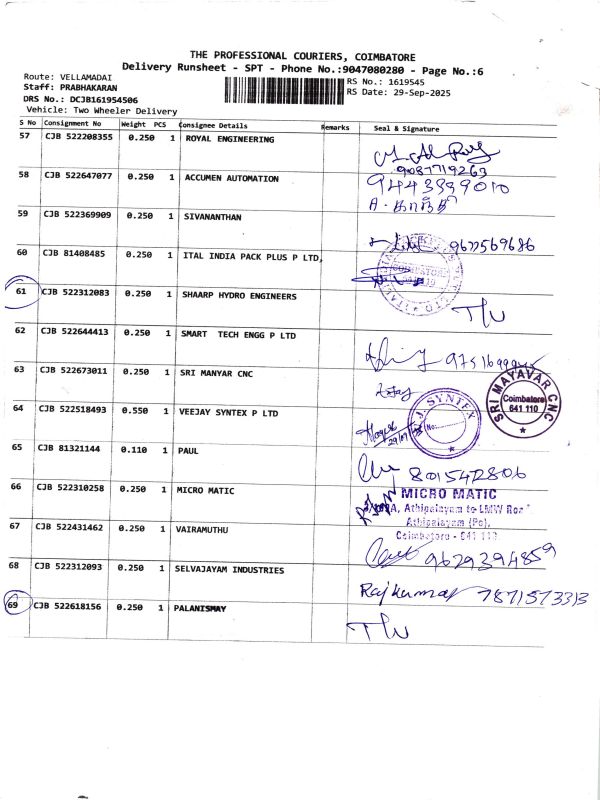 THE PROFESSIONAL COURIERS, COIMBATORE
Delivery Runsheet - SPT - Phone No.:9047080280 - Page No.:6
Route: VELLAMADAI
RS No.: 1619545
Staff: PRABHAKARAN
RS Date: 29-Sep-2025
DRS No.: DCJB161954506
Vehicle: Two Wheeler Delivery
S No Consignment No Weight PCS Consignee Details Remarks Seal & Signature
57 CJB 522208355 0.250 1 ROYAL ENGINEERING
9087719263
58 CJB 522647077 0.250 1 ACCUMEN AUTOMATION 9443399010
59 CJB 522369909 0.250 1 SIVANANTHAN
9622569686
60 CJB 81408485 0.250 1 ITAL INDIA PACK PLUS P LTD,
61 CJB 522312083 0.250 1 SHAARP HYDRO ENGINEERS
T/w
62 CJB 522644413 0.250 1 SMART TECH ENGG P LTD
63 CJB 522673011 0.250 1 SRI MANYAR CNC
SRI MAYAVAR CNC
Coimbatore
641 110
64 CJB 522518493 0.550 1 VEEJAY SYNTEX P LTD
J. SYNTEX
65 CJB 81321144 0.110 1 PAUL
801542806
66 CJB 522310258 0.250 1 MICRO MATIC
MICRO MATIC
Athipalayam to LMW Road
Athipalayam (Po),
Coimbatore - 641 110
67 CJB 522431462 0.250 1 VAIRAMUTHU
9629394859
68 CJB 522312093 0.250 1 SELVAJAYAM INDUSTRIES
Rajkumar 7871573313
69 CJB 522618156 0.250 1 PALANISMAY
T/w